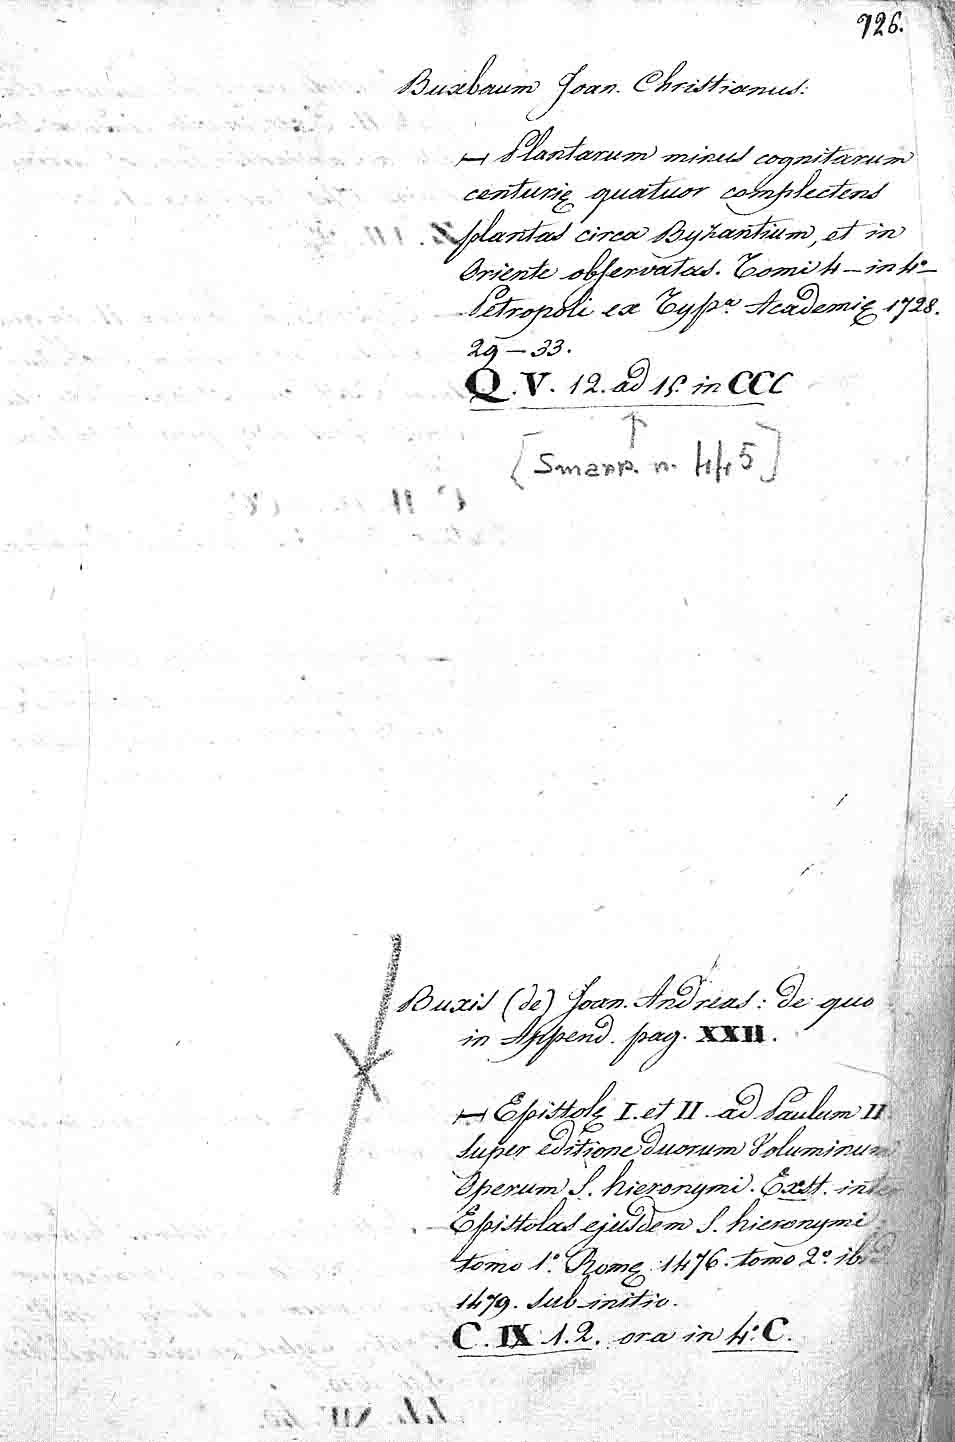 926.
Buxbaum Joan. Christianus:
— Plantarum minus cognitarum
centurię quatuor complectens
plantas circa Byzantium, et in
Oriente observatas. Tomi 4 – in 4°
Petropoli ex Typ.ª Academię 1728.
29 – 33.
Q. V. 12. ad 15. in CCC
[Smarr. n. 445]
Buxis (de) Joan. Andreas: de quo
in Append. pag. XXII.
— Epistolę I. et II ad Paulum II
super editione duorum Voluminum
Operum S. hieronymi. Exst. inter
Epistolas ejusdem S. hieronymi
tomo 1.° Romę 1476. tomo 2.° ibid
1479. sub initio.
C. IX 1. 2. ora in 4.° C.